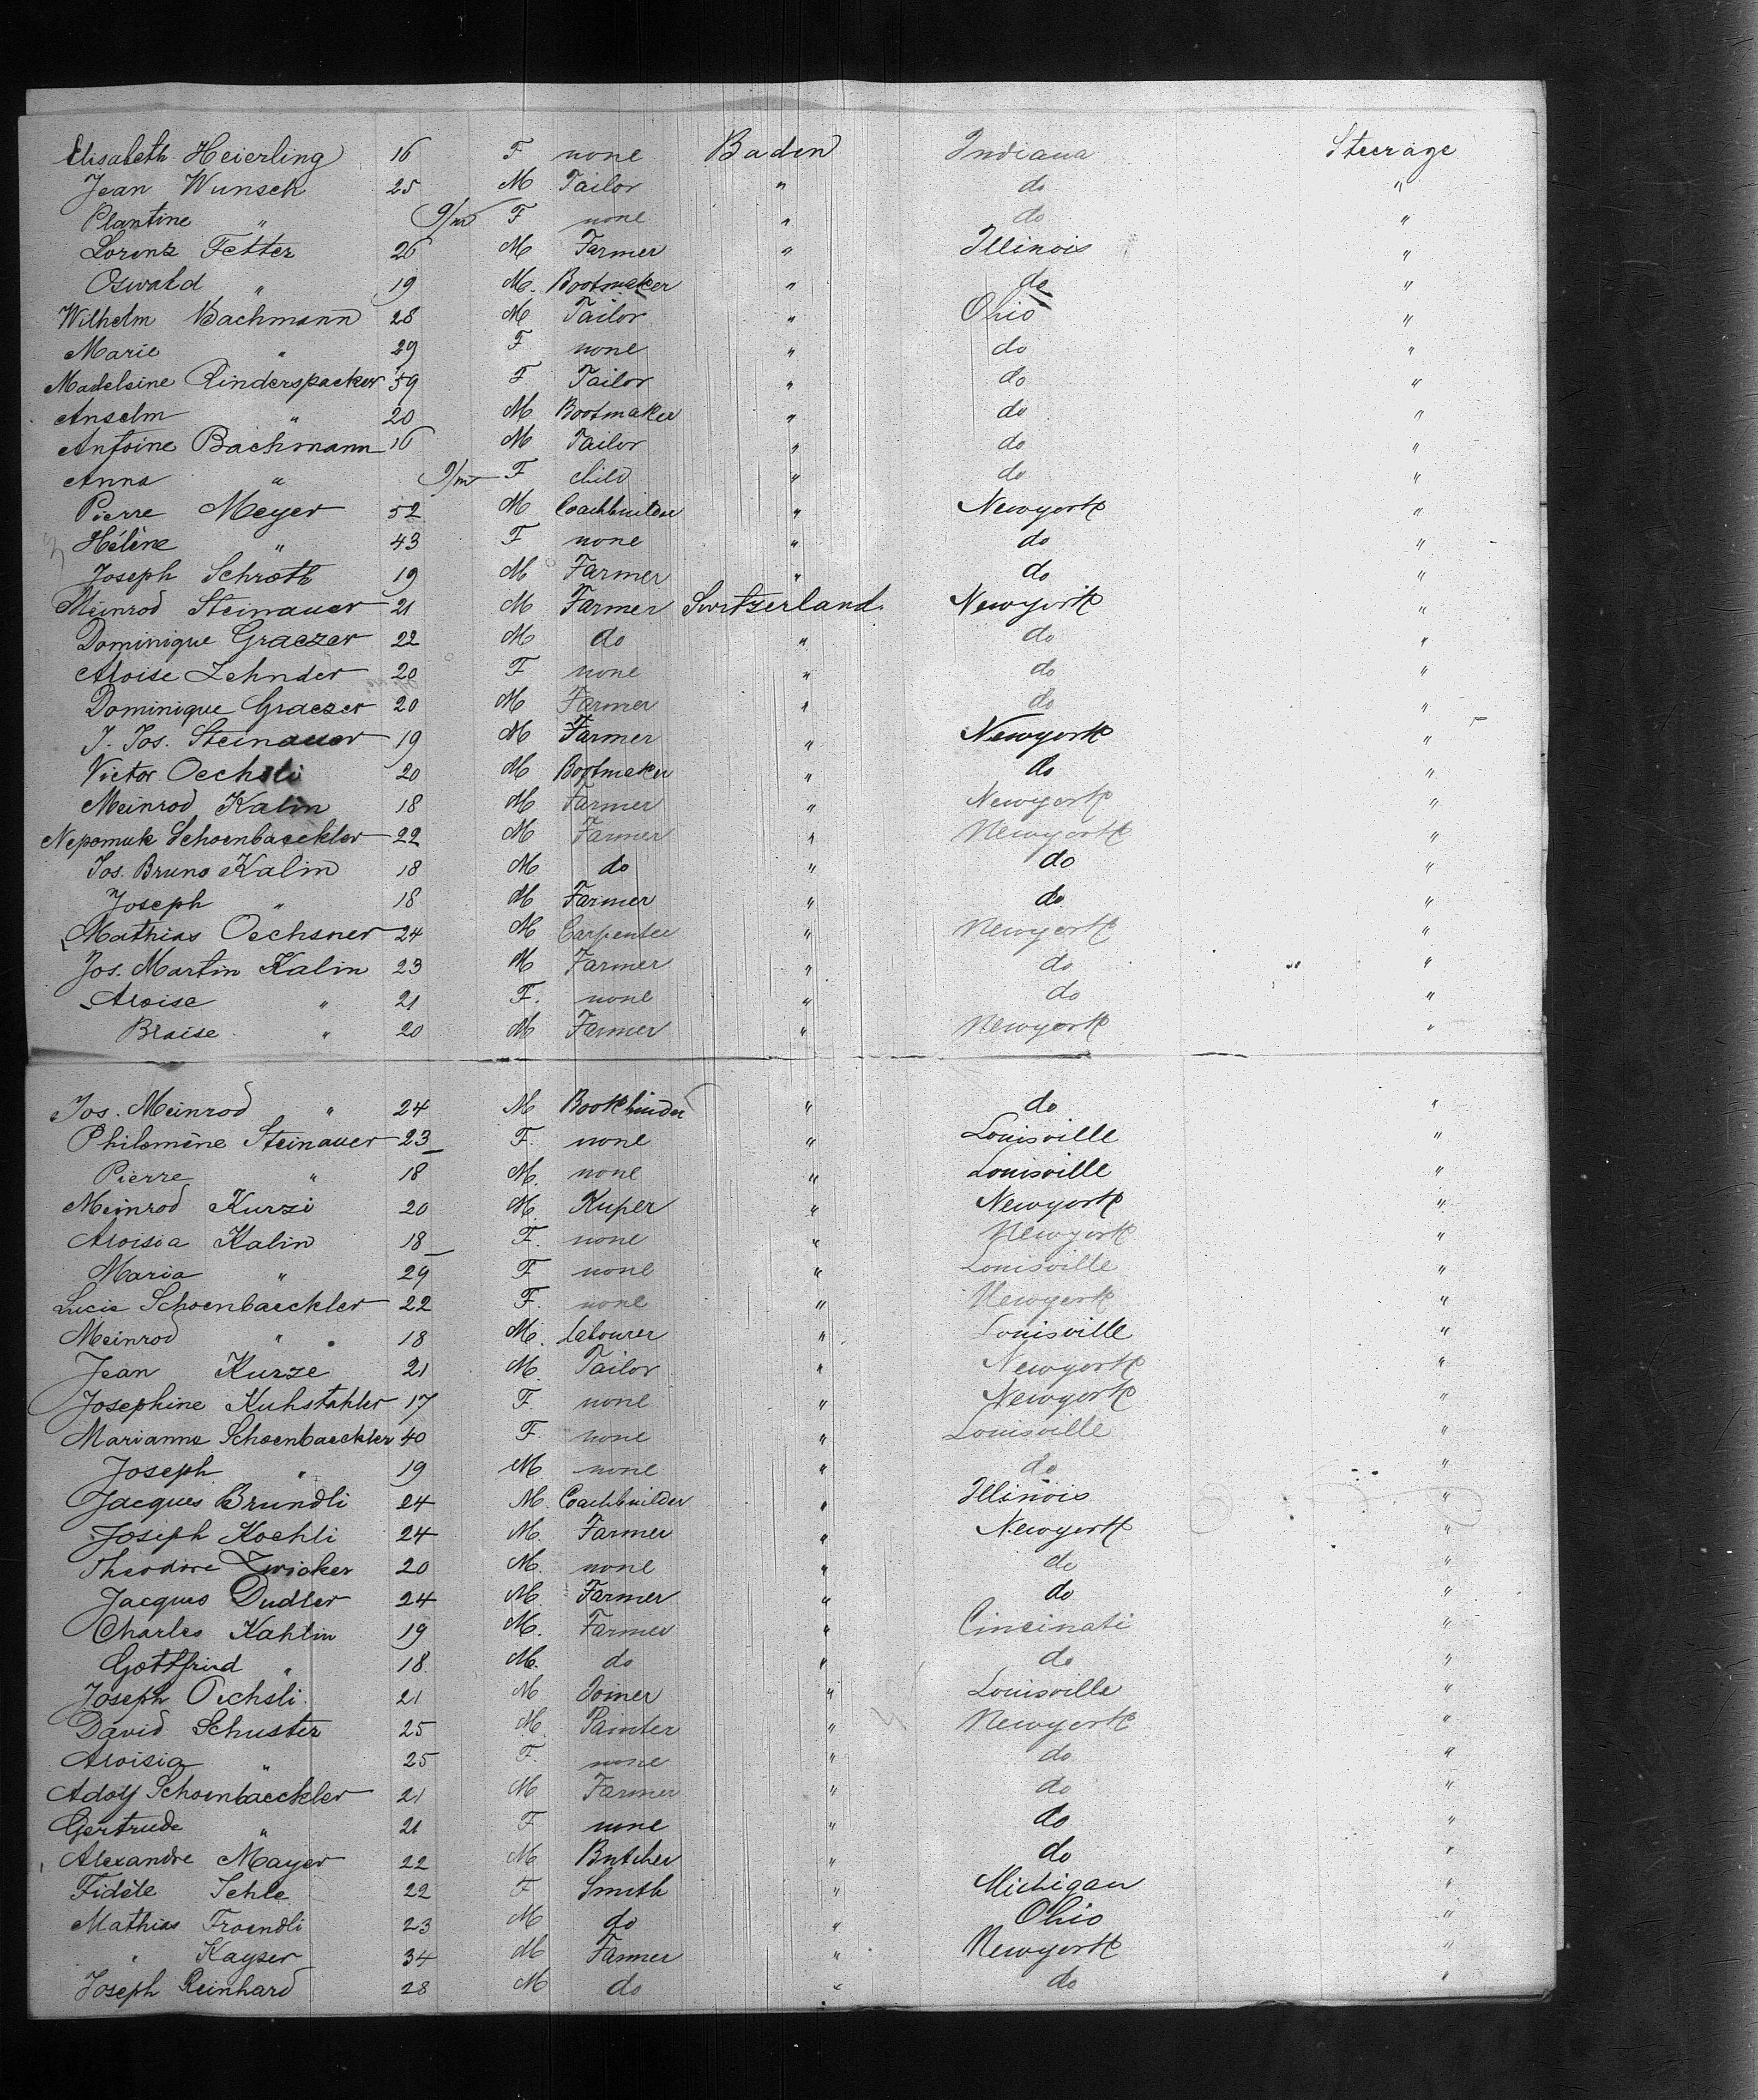 Elisabeth Heierling 16 F none Baden Indiana Steerage
Jean Wunsch 25 M Tailor " do "
Plantine " 9/m F none " do "
Lorenz Fetter 26 M Farmer " Illinois "
Oswald " 19 M. Bootmaker " do "
Wilhelm Bachmann 28 M Tailor " Ohio "
Marie " 29 F none " do "
Madeleine Rinderspacker 59 F Tailor " do "
Anselm " 20 M Bootmaker " do "
Antoine Bachmann 16 M Tailor " do "
Anna " 9/m F child " do "
Pierre Meyer 52 M Coachbuilder " Newyork "
Hélène " 43 F none " do "
Joseph Schroth 19 M Farmer " do "
Meinrod Steinauer 21 M Farmer Switzerland Newyork "
Dominique Graezer 22 M do " do "
Aloise Zehnder 20 F none " do "
Dominique Graezer 20 M Farmer " do "
J. Jos. Steinauer 19 M Farmer " Newyork "
Victor Oechsli 20 M Bootmaker " do "
Meinrod Kalin 18 M Farmer " Newyork "
Nepomuk Schoenbaeckler 22 M Farmer " Newyork "
Jos. Bruno Kalin 18 M do " do "
Joseph " 18 M Farmer " do "
Mathias Oechsner 24 M Carpenter " Newyork "
Jos. Martin Kalin 23 M Farmer " do "
Aloise " 21 F. none " do "
Blaise " 20 M Farmer " Newyork "
Jos. Meinrod " 24 M Bookbinder " do "
Philomène Steinauer 23 F. none " Louisville "
Pierre " 18 M. none " Louisville "
Meinrod Kurzi 20 M. Kuper " Newyork "
Aloisia Kalin 18 F. none " Newyork "
Maria " 29 F none " Louisville "
Lucie Schoenbaeckler 22 F. none " Newyork "
Meinrod " 18 M. Labourer " Louisville "
Jean Kurze 21 M. Tailor " Newyork "
Josephine Kuhstahler 17 F. none " Newyork "
Marianne Schoenbaeckler 40 F. none " Louisville "
Joseph " 19 M none " do "
Jacques Brundli 24 M. Coachbuilder " Illinois "
Joseph Kochli 24 M. Farmer " Newyork "
Theodore Zwicker 20 M. none " do "
Jacques Dudler 24 M. Farmer " do "
Charles Kahlin 19 M. Farmer " Cincinati "
Gottfried " 18 M. do " do "
Joseph Oechsli 21 M Joiner " Louisville "
David Schuster 25 M. Painter " Newyork "
Aloisia " 25 F. none " do "
Adolf Schoenbaeckler 21 M Farmer " do "
Gertrude " 21 F none " do "
Alexandre Mayer 22 M Butcher " do "
Fidèle Sehle 22 F Smith " Michigan "
Mathias Froendli 23 M do " Ohio "
" Kayser 34 M Farmer " Newyork "
Joseph Reinhard 28 M do " do "